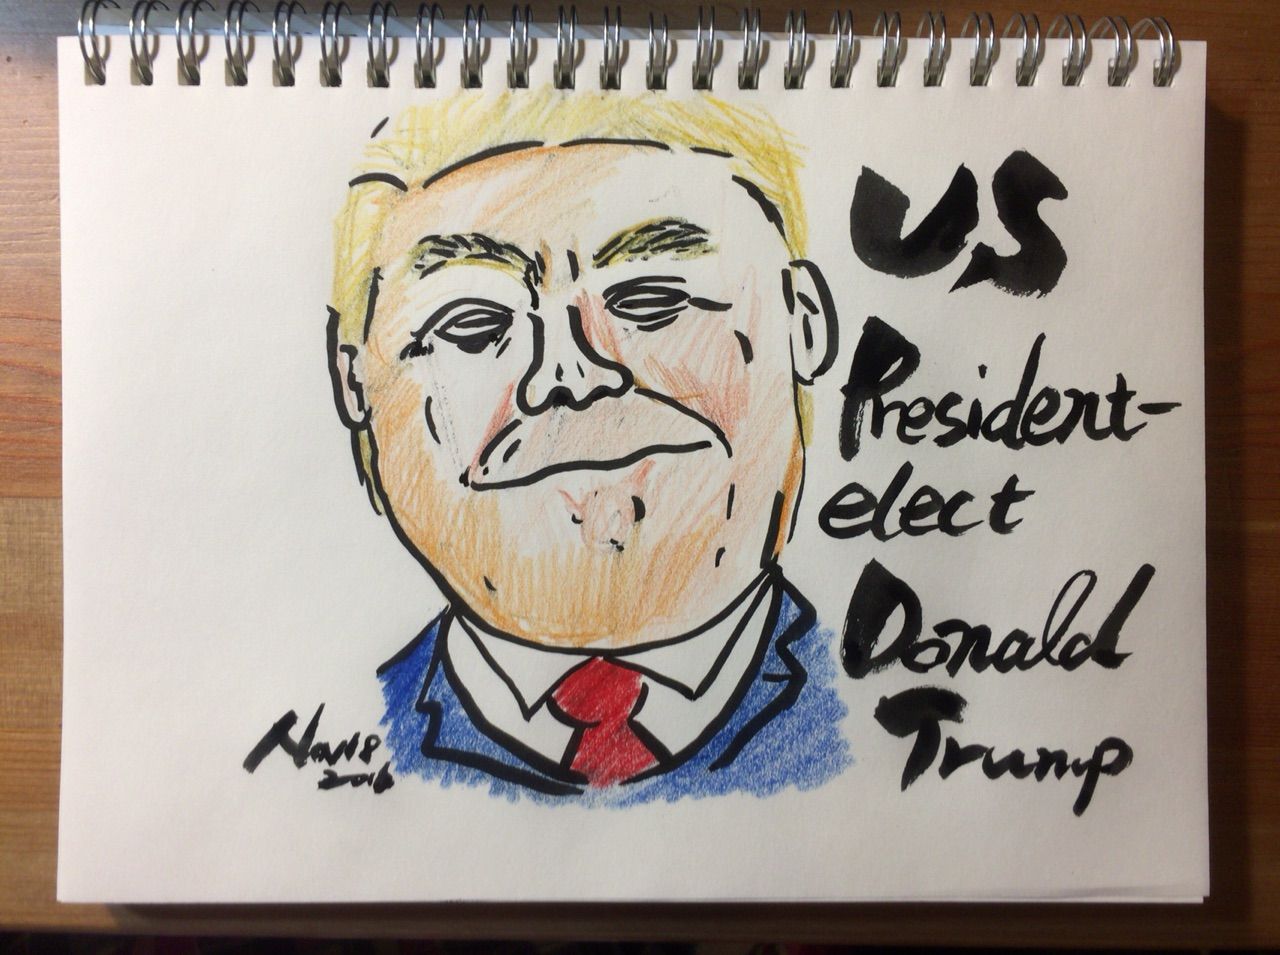 US
President-
elect
Donald
Trump
Nov18
2016